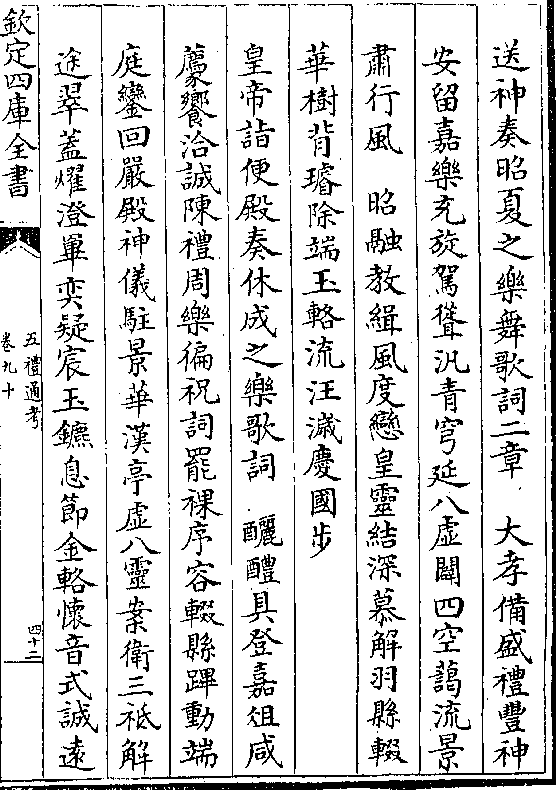 送神奏昭夏之樂舞歌詞二章 大孝備盛禮豐神
安留嘉樂充旋駕聳汎青穹延八虛闢四空藹流景
肅行風 昭融教緝風度戀皇靈結深慕解羽縣輟
華樹背璿除端玉輅流汪濊慶國步
皇帝詣便殿奏休成之樂歌詞 釃醴具登嘉俎咸
薦饗洽誠陳禮周樂徧祝詞罷祼序容輟縣蹕動端
庭鑾回嚴殿神儀駐景華漢亭虛八靈案衛三祗解
途翠蓋燿澄畢奕凝宸玉鑣息節金輅懷音式誠遠
欽定四庫全書
五禮通考
卷九十
四十二